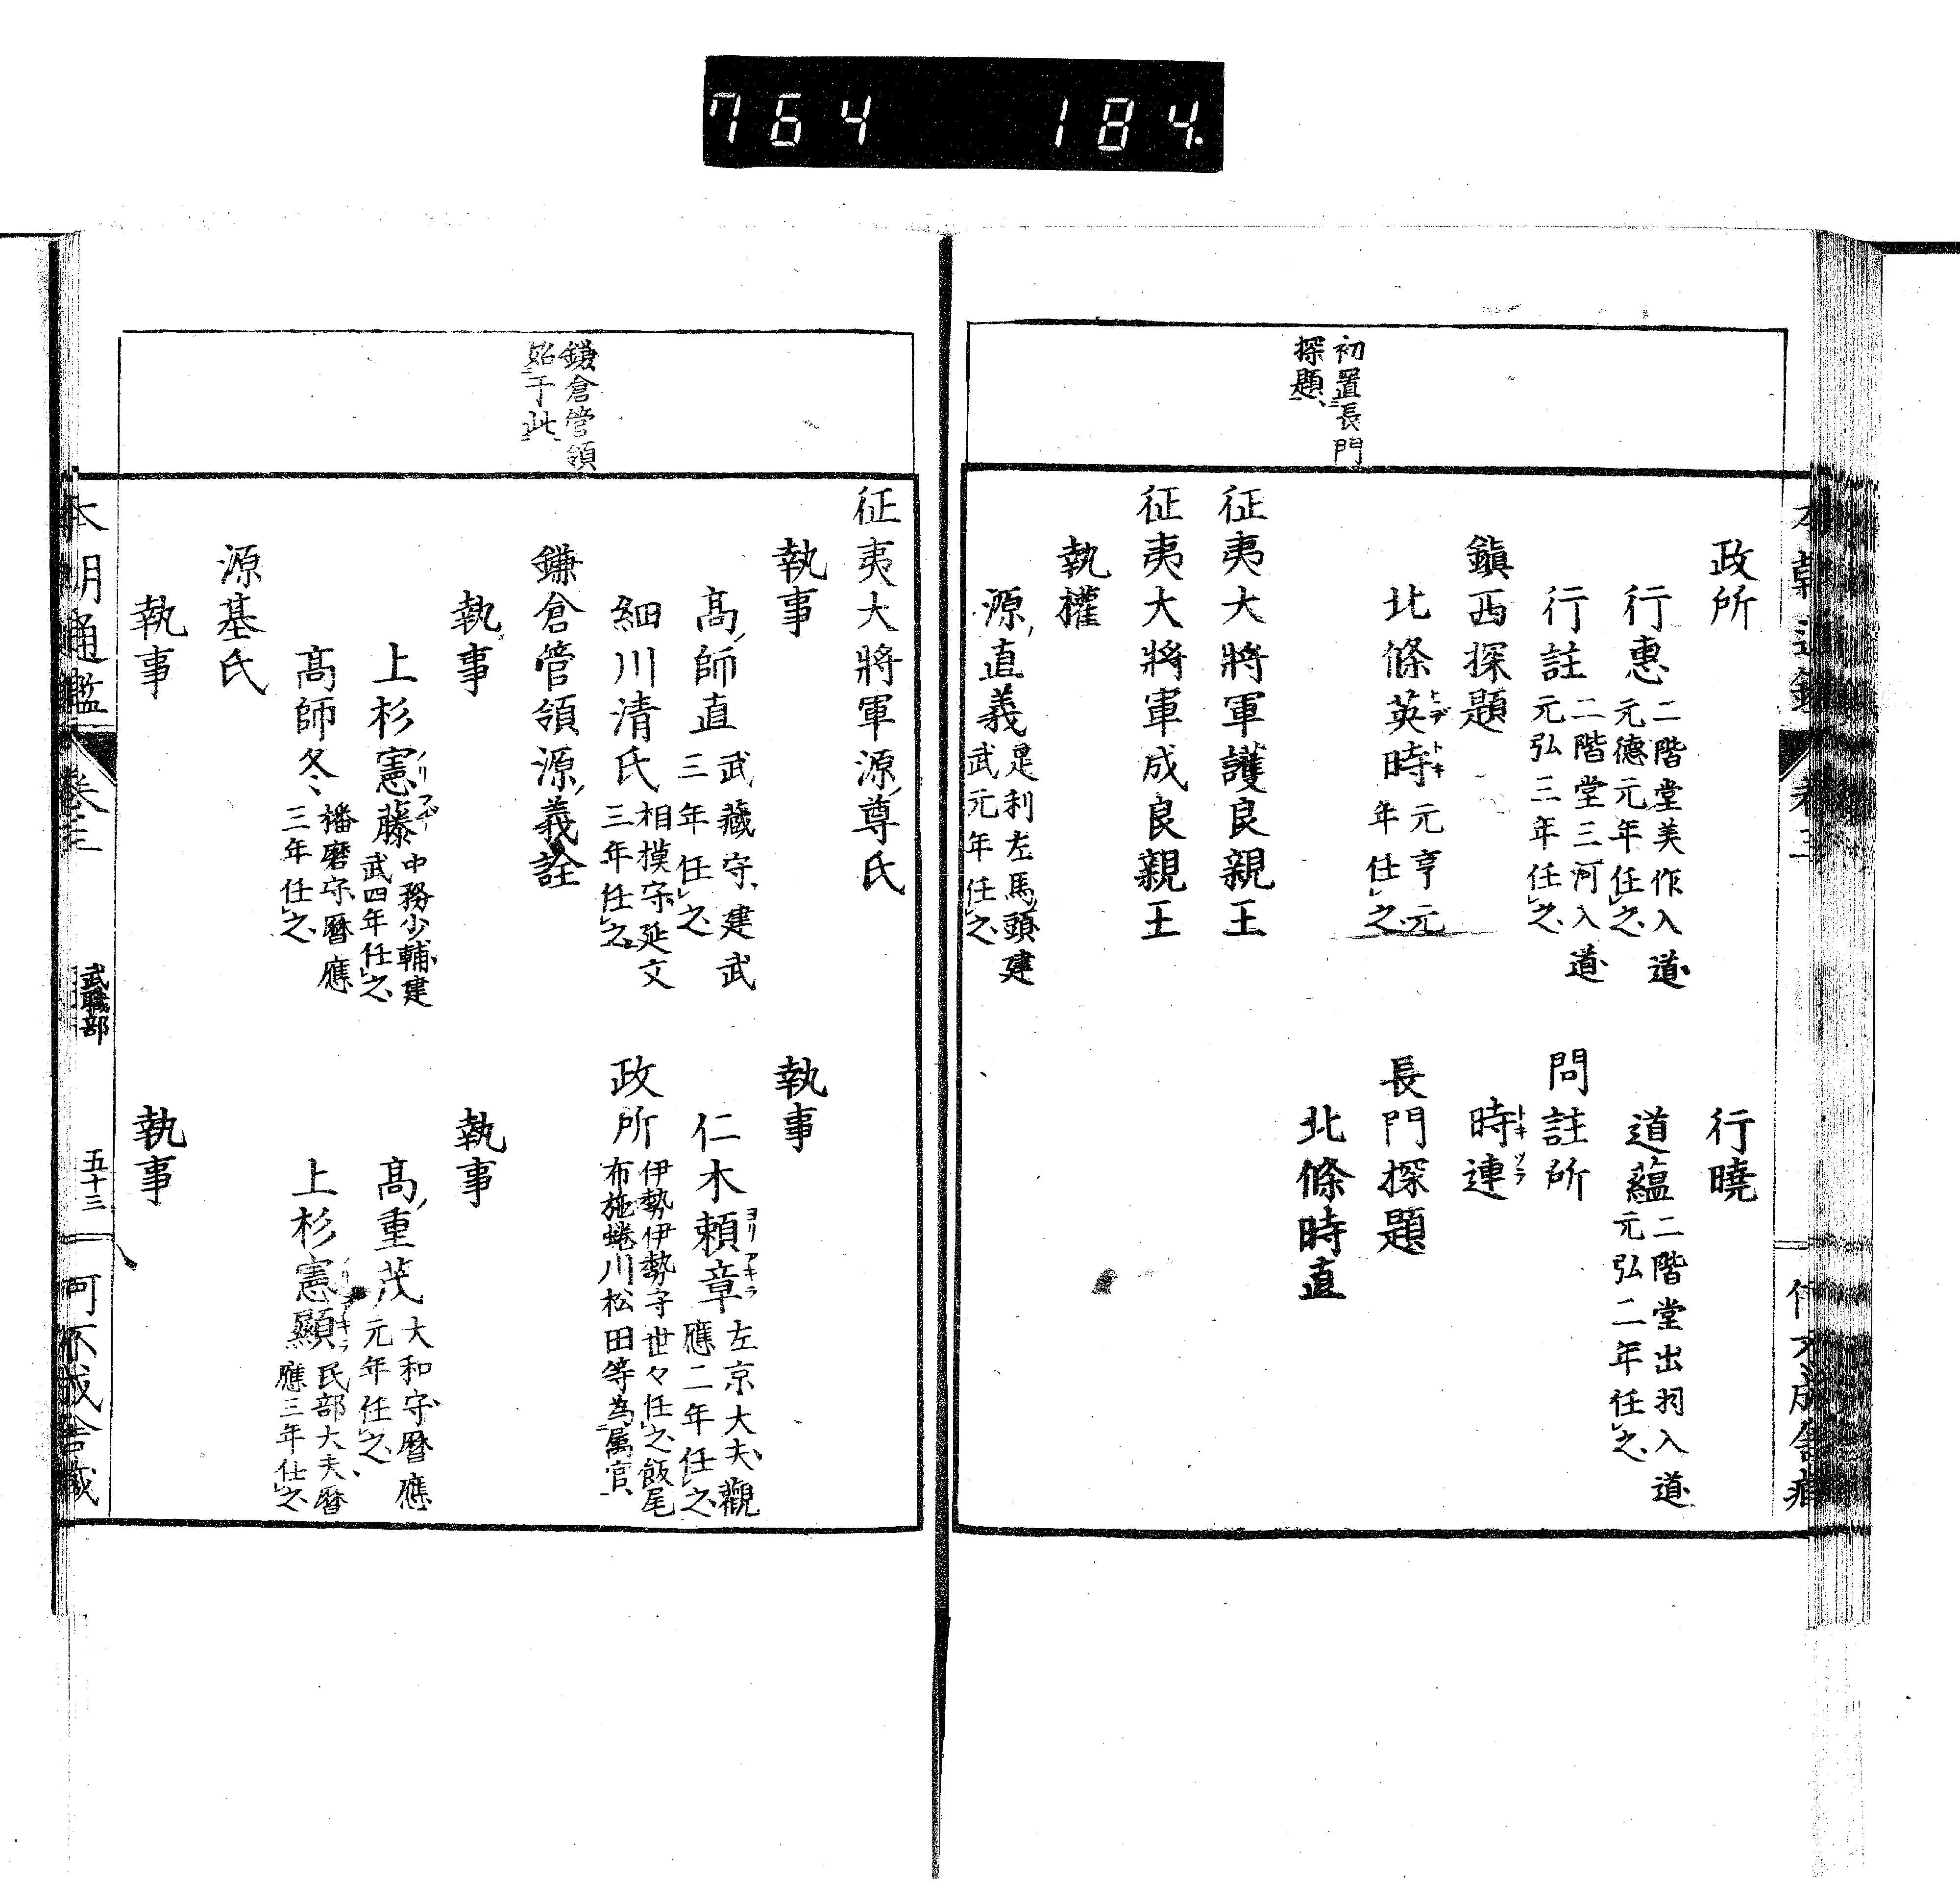 764 184
初置長門
探題
政所
行曉
行惠 二階堂美作入道
元德元年任之
道蘊 二階堂出羽入道
元弘二年任之
行詮 二階堂三河入道
元弘三年任之
問註所
鎭西探題
時連 トキツラ
北條英時 ヒデトキ 元亨元
年任之
長門探題
北條時直
征夷大將軍護良親王
征夷大將軍成良親王
執權
源直義 是利左馬頭建
武元年任之
鎌倉管領
始于此
征夷大將軍源尊氏
執事
執事
高師直 武藏守建武
三年任之
仁木賴章 ヨリアキラ 左京大夫觀
應二年任之
細川清氏 相摸守延文
三年任之
政所 伊勢伊勢守世々任之飯尾
布施蜷川松田等為属官
鎌倉管領源義詮
執事
執事
上杉憲藤 ノリフヂ 中務少輔建
武四年任之
高重茂 大和守曆應
元年任之
高師冬 播磨守曆應
三年任之
上杉憲顯 ノリアキラ 民部大夫曆
應三年任之
源基氏
執事
執事
本朝通鑑 卷三 武職部 五十三